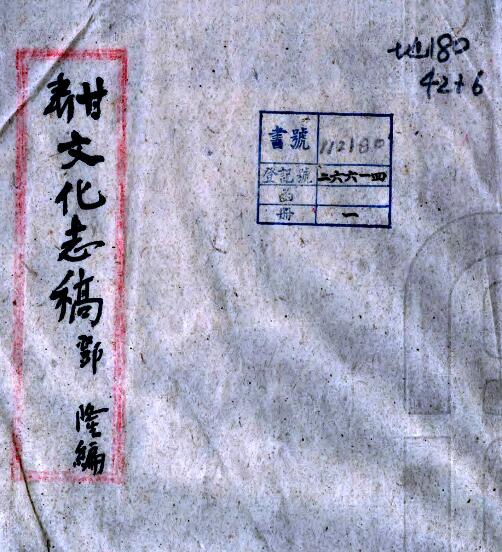 地180
42+6
甘肅文化志稿 鄧隆編
書號 112180
登記號 二六六一四
函
冊 一